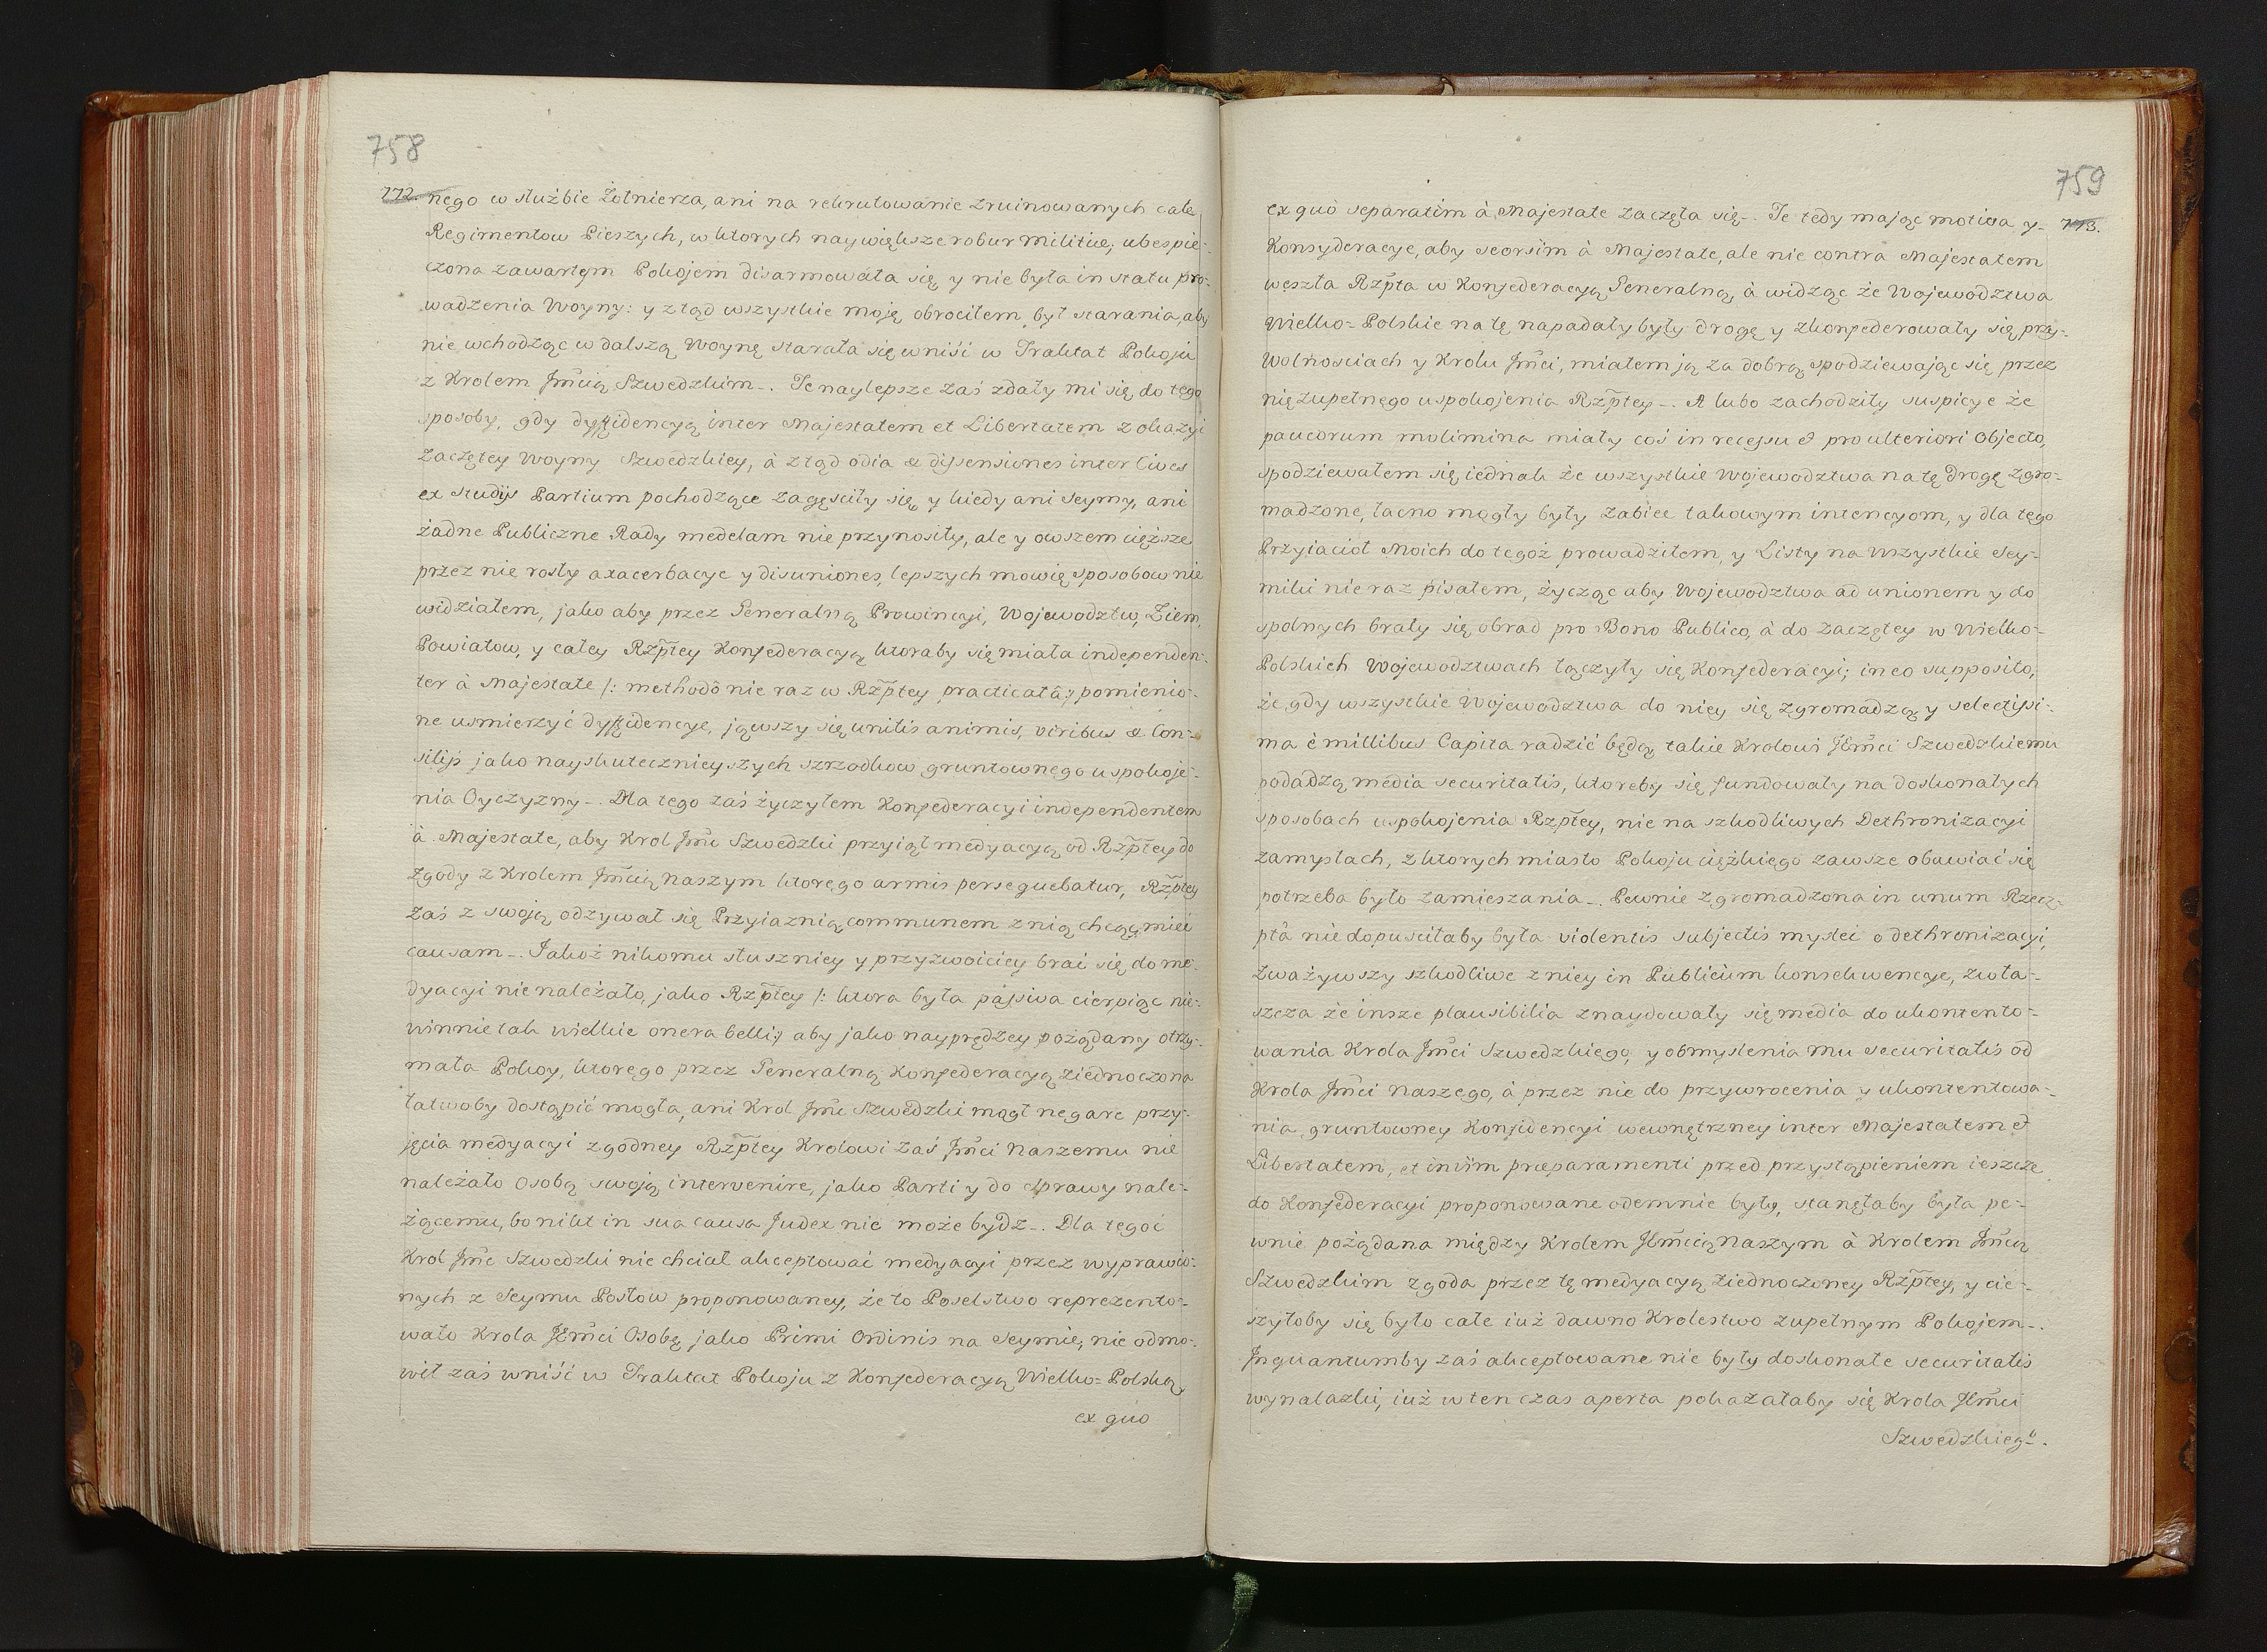 758
772. nego w służbie Żołnierza, ani na rekrutowanie zruinowanych cale
Regimentow Pieszych, w ktorych naywiększe robur militiæ; ubespie-
czona zawartęm Pokojem disarmowała się y nie była in statu pro-
wadzenia Woyny: y ztąd wszystkie moję obrociłem był starania, aby
nie wchodząc w dalszą Woynę starała się wniść w Traktat Pokoju
z Krolem Jm̃cią Szwedzkim_. Te naylepsze zaś zdały mi się do tego
sposoby, gdy dyffidencyą inter Majestatem et Libertatem z okazyi
zaczętey Woyny Szwedzkiey, à ztąd odia & dissensiones inter Cives
ex studijs Partium pochodzące zagęściły się, y kiedy ani Seymy, ani
żadne Publiczne Rady medelam nie przynosiły, ale y owszem cięższe
przez nie rosły axacerbacye y disuniones, lepszych mowię sposobow nie
widziałem, jako aby przez Generalną Prowincyi, Wojewodztw, Ziem,
Powiatow, y całey Rzp̃tey Konfederacyą ktoraby się miała independen-
ter à Majestate /: methodô nie raz w Rzp̃tey practicatâ :/ pomienio-
ne uśmierzyć dyffidencye, jąwszy się unitis animis, viribus & Con-
silijs jako nayskutecznieyszych szrzodkow gruntownego uspokoje-
nia Oyczyzny_. Dla tego zaś życzyłem Konfederacyi independentem
à Majestate, aby Krol Jm̃c Szwedzki przyiął medyacyą od Rzp̃tey do
zgody z Krolem Jm̃cią naszym ktorego armis persequebatur, Rzp̃tey
zaś z swoją odzywał się Przyiaznią communem z nią chcąc mieć
causam_. Jakoż nikomu słuszniey y przyzwoiciey brać się do me-
dyacyi nie należało, jako Rzp̃tey /: ktora była passiva cierpiąc nie-
winnie tak wielkie onera belli :/ aby jako nayprędzey pożądany otrzy-
mała Pokoy, ktorego przez Generalną Konfederacyą ziednoczona
łatwoby dostąpić mogła, ani Krol Jm̃c Szwedzki mogł negare przy-
jęcia medyacyi zgodney Rzp̃tey Krolowi zaś Jm̃ci Naszemu nie
należało osobą swoją intervenire, jako Parti y do sprawy nale-
żącemu, bo nikt in sua causa Judex nie może bydz_. Dla tegoć
Krol Jm̃c Szwedzki nie chciał akceptować medyacyi przez wyprawio-
nych z Seymu Posłow proponowaney, że to Poselstwo reprezento-
wało Krola JEm̃ci Osobę jako Primi Ordinis na Seymie; nie odmo-
wił zaś wniść w Traktat Pokoju z Konfederacyą Wielko=Polską,
ex quo
759
ex quô separatim à Majestate zaczęła się_. Te tedy mając motiva, y 773.
Konsyderacye, aby seorsim à Majestate, ale nie contra Majestatem
weszła Rzp̃ta w Konfederacyą Generalną, à widząc że Wojewodztwa
Wielko=Polskie na tę napadały były drogę y zkonfederowały się przy
Wolnościach y Krolu Jm̃ci, miałem ją za dobrą spodziewając się przez
nię zupełnego uspokojenia Rzp̃tey_. A lubo zachodziły suspicye że
paucorum molimina miały coś in recessu & pro ulteriori Objecto,
spodziewałem się iednak że wszystkie Wojewodztwa na tę drogę zgro-
madzone, łacno mogły były zabiec takowym intencyom, y dla tego
Przyiacioł Moich do tegoż prowadziłem, y Listy na wszystkie Sey-
miki nie raz pisałem, życząc aby Wojewodztwa ad unionem y do
spolnych brały się obrad pro Bono Publico, à do zaczętey w Wielko-
Polskich Wojewodztwach łączyły się Konfederacyi; in eo supposito,
że gdy wszystkie Wojewodztwa do niey się zgromadzą y selectissi-
ma è millibus Capita radzić będą, takie Krolowi JEm̃ci Szwedzkiemu
podadzą media securitatis, ktoreby się fundowały na doskonałych
sposobach uspokojenia Rzp̃tey, nie na szkodliwych Dethronizacyi
zamysłach, z ktorych miasto Pokoju ciężkiego zawsze obawiać się
potrzeba było zamieszania_. Pewnie zgromadzona in unum Rzecz-
ptâ nie dopuściłaby była violentis subjectis myśleć o dethronizacyi,
zważywszy szkodliwe z niey in Publicum konsekwencye, zwła-
szcza że insze plausibilia znaydowały się media do ukontento-
wania Krola Jm̃ci Szwedzkiego, y obmyślenia mu securitatis od
Krola Jm̃ci Naszego, à przez nie do przywrocenia y ukontentowa-
nia gruntowney Konfidencyi wewnętrzney inter Majestatem &
Libertatem, et in vim præparamenti przed przystąpieniem ieszcze
do Konfederacyi proponowane odemnie były, stanęłaby była pe-
wnie pożądana między Krolem JEm̃cią naszym à Krolem Jm̃cią
Szwedzkim zgoda przez tę medyacyą ziednoczoney Rzp̃tey, y cie-
szyłoby się było całe iuż dawno Krolestwo zupełnym Pokojem_.
Inquantumby zaś akceptowane nie były doskonałe securitatis
wynalazki, iuż w ten czas aperta pokazałaby się Krola JEm̃ci
Szwedzkieg°_.